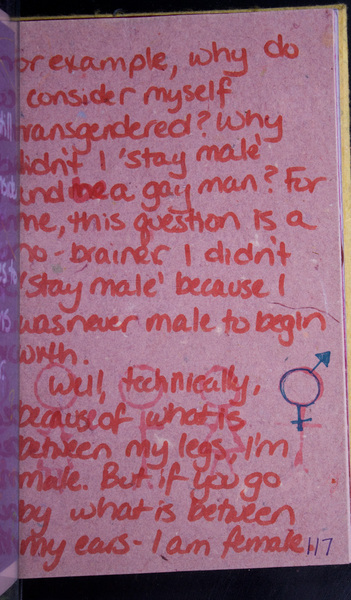 For example, why do
I consider myself
transgendered? Why
didn't I 'stay male'
and be a gay man? For
me, this question is a
no-brainer. I didn't
'stay male' because I
was never male to begin
with.
Well, technically,
because of what is
between my legs, I'm
male. But if you go
by what is between
my ears - I am female.
117